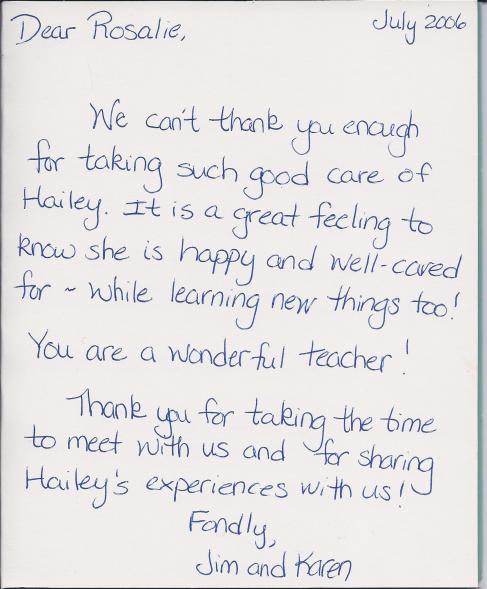 Dear Rosalie, July 2006
We can't thank you enough
for taking such good care of
Hailey. It is a great feeling to
know she is happy and well-cared
for ~ while learning new things too!
You are a wonderful teacher!
Thank you for taking the time
to meet with us and for sharing
Hailey's experiences with us!
Fondly,
Jim and Karen